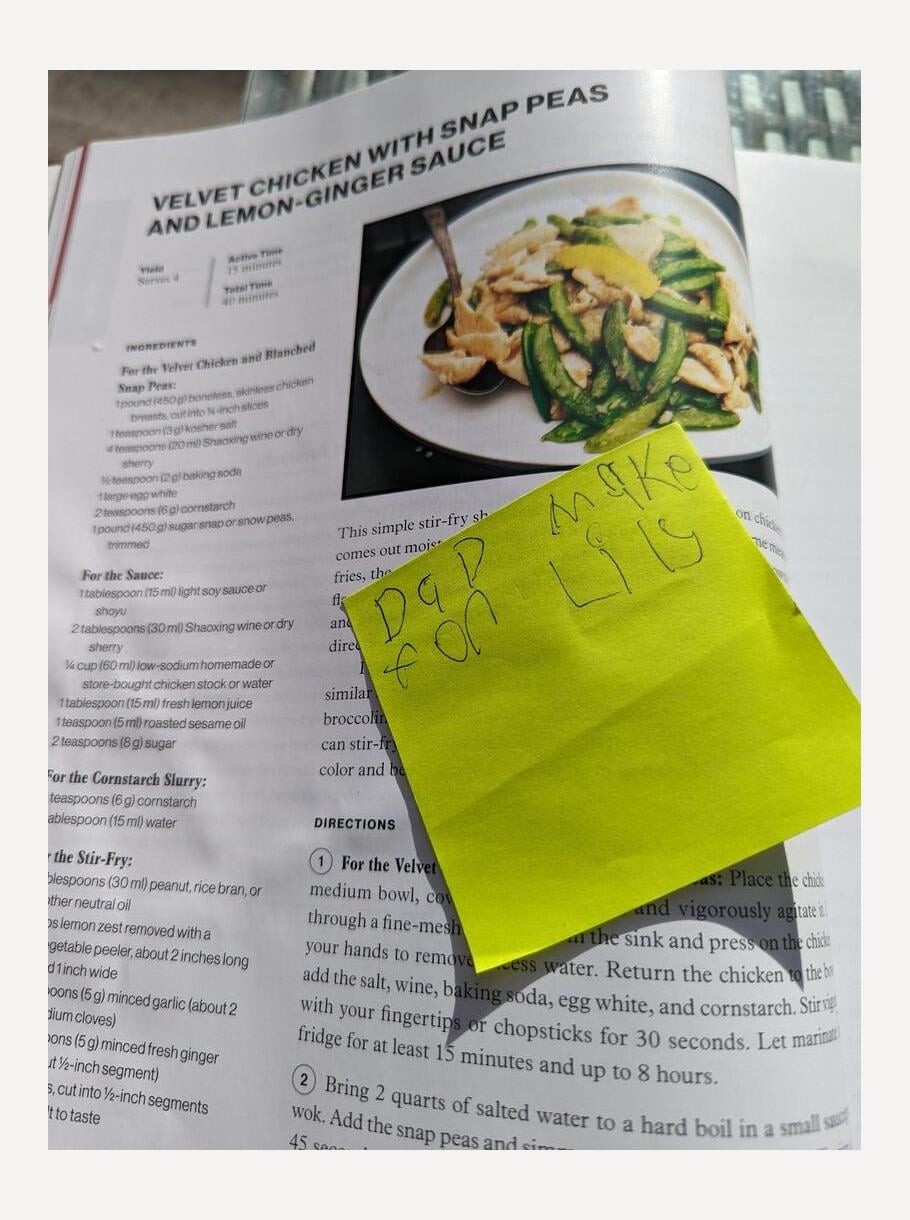 VELVET CHICKEN WITH SNAP PEAS
AND LEMON-GINGER SAUCE
Yield
Serves 4
Active Time
15 minutes
Total Time
40 minutes
INGREDIENTS
For the Velvet Chicken and Blanched
Snap Peas:
1 pound (450 g) boneless, skinless chicken
breasts, cut into ¼-inch slices
1 teaspoon (3 g) kosher salt
4 teaspoons (20 ml) Shaoxing wine or dry
sherry
½ teaspoon (2 g) baking soda
1 large egg white
2 teaspoons (6 g) cornstarch
1 pound (450 g) sugar snap or snow peas,
trimmed
For the Sauce:
1 tablespoon (15 ml) light soy sauce or
shoyu
2 tablespoons (30 ml) Shaoxing wine or dry
sherry
¼ cup (60 ml) low-sodium homemade or
store-bought chicken stock or water
1 tablespoon (15 ml) fresh lemon juice
1 teaspoon (5 ml) roasted sesame oil
2 teaspoons (8 g) sugar
For the Cornstarch Slurry:
teaspoons (6 g) cornstarch
ablespoon (15 ml) water
the Stir-Fry:
blespoons (30 ml) peanut, rice bran, or
ther neutral oil
ps lemon zest removed with a
getable peeler, about 2 inches long
d 1 inch wide
poons (5 g) minced garlic (about 2
dium cloves)
oons (5 g) minced fresh ginger
ut ½-inch segment)
s, cut into ½-inch segments
lt to taste
DaD make
for Lily
This simple stir-fry sh
on chicken
comes out moist
fries, the
and
direc
similar
broccolin
can stir-fry
color and be
DIRECTIONS
1 For the Velvet
as: Place the chick
medium bowl, cov
and vigorously agitate it.
through a fine-mesh
in the sink and press on the chicke
your hands to remove excess water. Return the chicken to the bo
add the salt, wine, baking soda, egg white, and cornstarch. Stir vig
with your fingertips or chopsticks for 30 seconds. Let marinate
fridge for at least 15 minutes and up to 8 hours.
2 Bring 2 quarts of salted water to a hard boil in a small sauce
wok. Add the snap peas and simm
45 seco